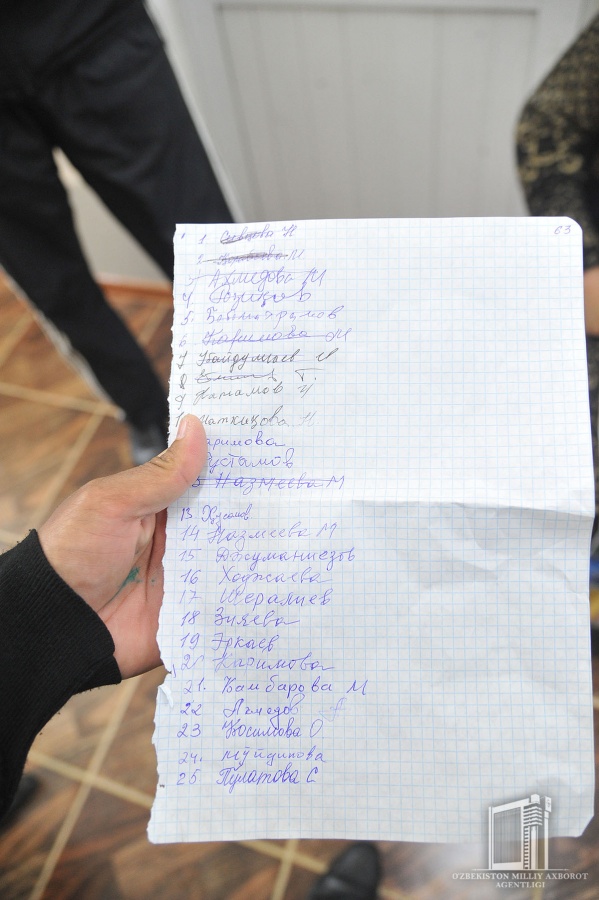 63
1
3 Ахмедова М
4
5 Бекмахрамов
6 Каримова М
7
8 Г.
9 Хатамов
Маткицова Н
Каримова
Рустамов
Назмеева М
13 Хусанов
14 Назмеева М
15 Джуманиезов
16 Ходжаева
17 Шералиев
18 Зияева
19 Эркаев
Каримова
21. Камбарова М
22 Ахмедов
23 Юсимова О
24. Муйдинова
25 Пулатова С
O'ZBEKISTON MILLIY AXBOROT
AGENTLIGI